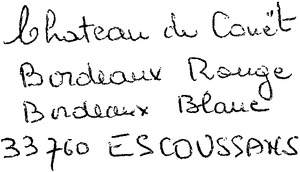 Chateau du Couët
Bordeaux Rouge
Bordeaux Blanc
33760 ESCOUSSANS